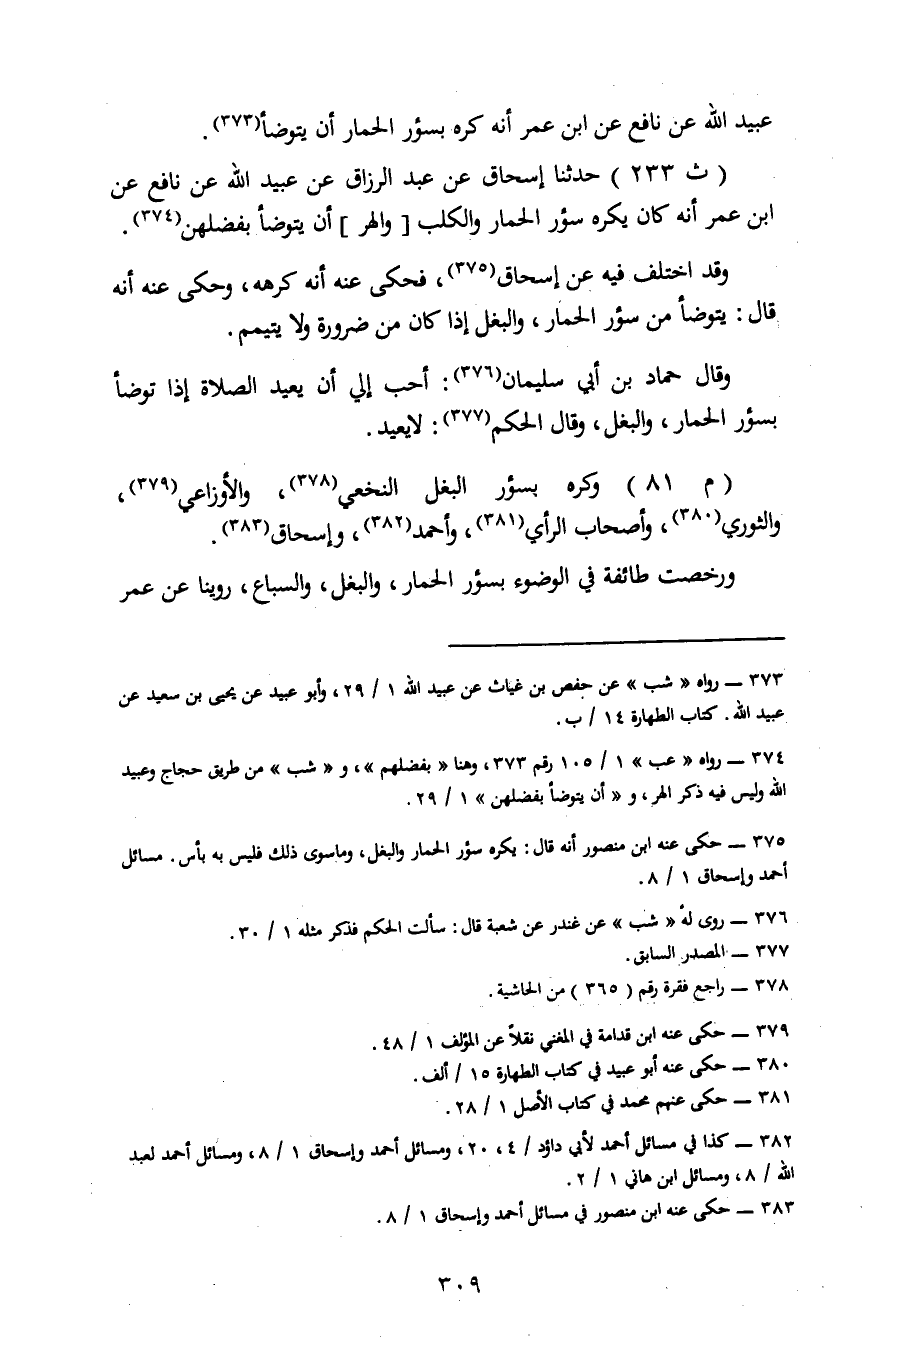 عبيد الله عن نافع عن ابن عمر أنه كره بسؤر الحمار أن يتوضأ(٣٧٣).
( ث ٢٣٣ ) حدثنا إسحاق عن عبد الرزاق عن عبيد الله عن نافع عن
ابن عمر أنه كان يكره سؤر الحمار والكلب [ والهر ] أن يتوضأ بفضلهن(٣٧٤).
وقد اختلف فيه عن إسحاق(٣٧٥)، فحكى عنه أنه كرهه، وحكى عنه أنه
قال : يتوضأ من سؤر الحمار ، والبغل إذا كان من ضرورة ولا يتيمم .
وقال حماد بن أبي سليمان(٣٧٦): أحب إلي أن يعيد الصلاة إذا توضأ
بسؤر الحمار ، والبغل، وقال الحكم(٣٧٧): لايعيد .
( م ٨١ ) وكره بسؤر البغل النخعي(٣٧٨)، والأوزاعي(٣٧٩)،
والثوري(٣٨٠)، وأصحاب الرأي(٣٨١)، وأحمد(٣٨٢)، وإسحاق(٣٨٣).
ورخصت طائفة في الوضوء بسؤر الحمار ، والبغل، والسباع، روينا عن عمر
٣٧٣ ــ رواه « شب » عن حفص بن غياث عن عبيد الله ١ / ٢٩، وأبو عبيد عن يحيى بن سعيد عن
عبيد الله. كتاب الطهارة ١٤ / ب.
٣٧٤ ــ رواه « عب » ١ / ١٠٥ رقم ٣٧٣، وهنا « بفضلهم »، و « شب » من طريق حجاج وعبيد
الله وليس فيه ذكر الهر، و « أن يتوضأ بفضلهن » ١ / ٢٩.
٣٧٥ ــ حكى عنه ابن منصور أنه قال : يكره سؤر الحمار والبغل، وماسوى ذلك فليس به بأس. مسائل
أحمد وإسحاق ١ / ٨.
٣٧٦ ــ روى له « شب » عن غندر عن شعبة قال : سألت الحكم فذكر مثله ١ / ٣٠.
٣٧٧ ــ المصدر السابق.
٣٧٨ ــ راجع فقرة رقم ( ٣٦٥ ) من الحاشية.
٣٧٩ ــ حكى عنه ابن قدامة في المغني نقلاً عن المؤلف ١ / ٤٨.
٣٨٠ ــ حكى عنه أبو عبيد في كتاب الطهارة ١٥ / ألف.
٣٨١ ــ حكى عنهم محمد في كتاب الأصل ١ / ٢٨.
٣٨٢ ــ كذا في مسائل أحمد لأبي داؤد / ٤، ٢٠، ومسائل أحمد وإسحاق ١ / ٨، ومسائل أحمد لعبد
الله / ٨، ومسائل ابن هاني ١ / ٢.
٣٨٣ ــ حكى عنه ابن منصور في مسائل أحمد وإسحاق ١ / ٨.
٣٠٩